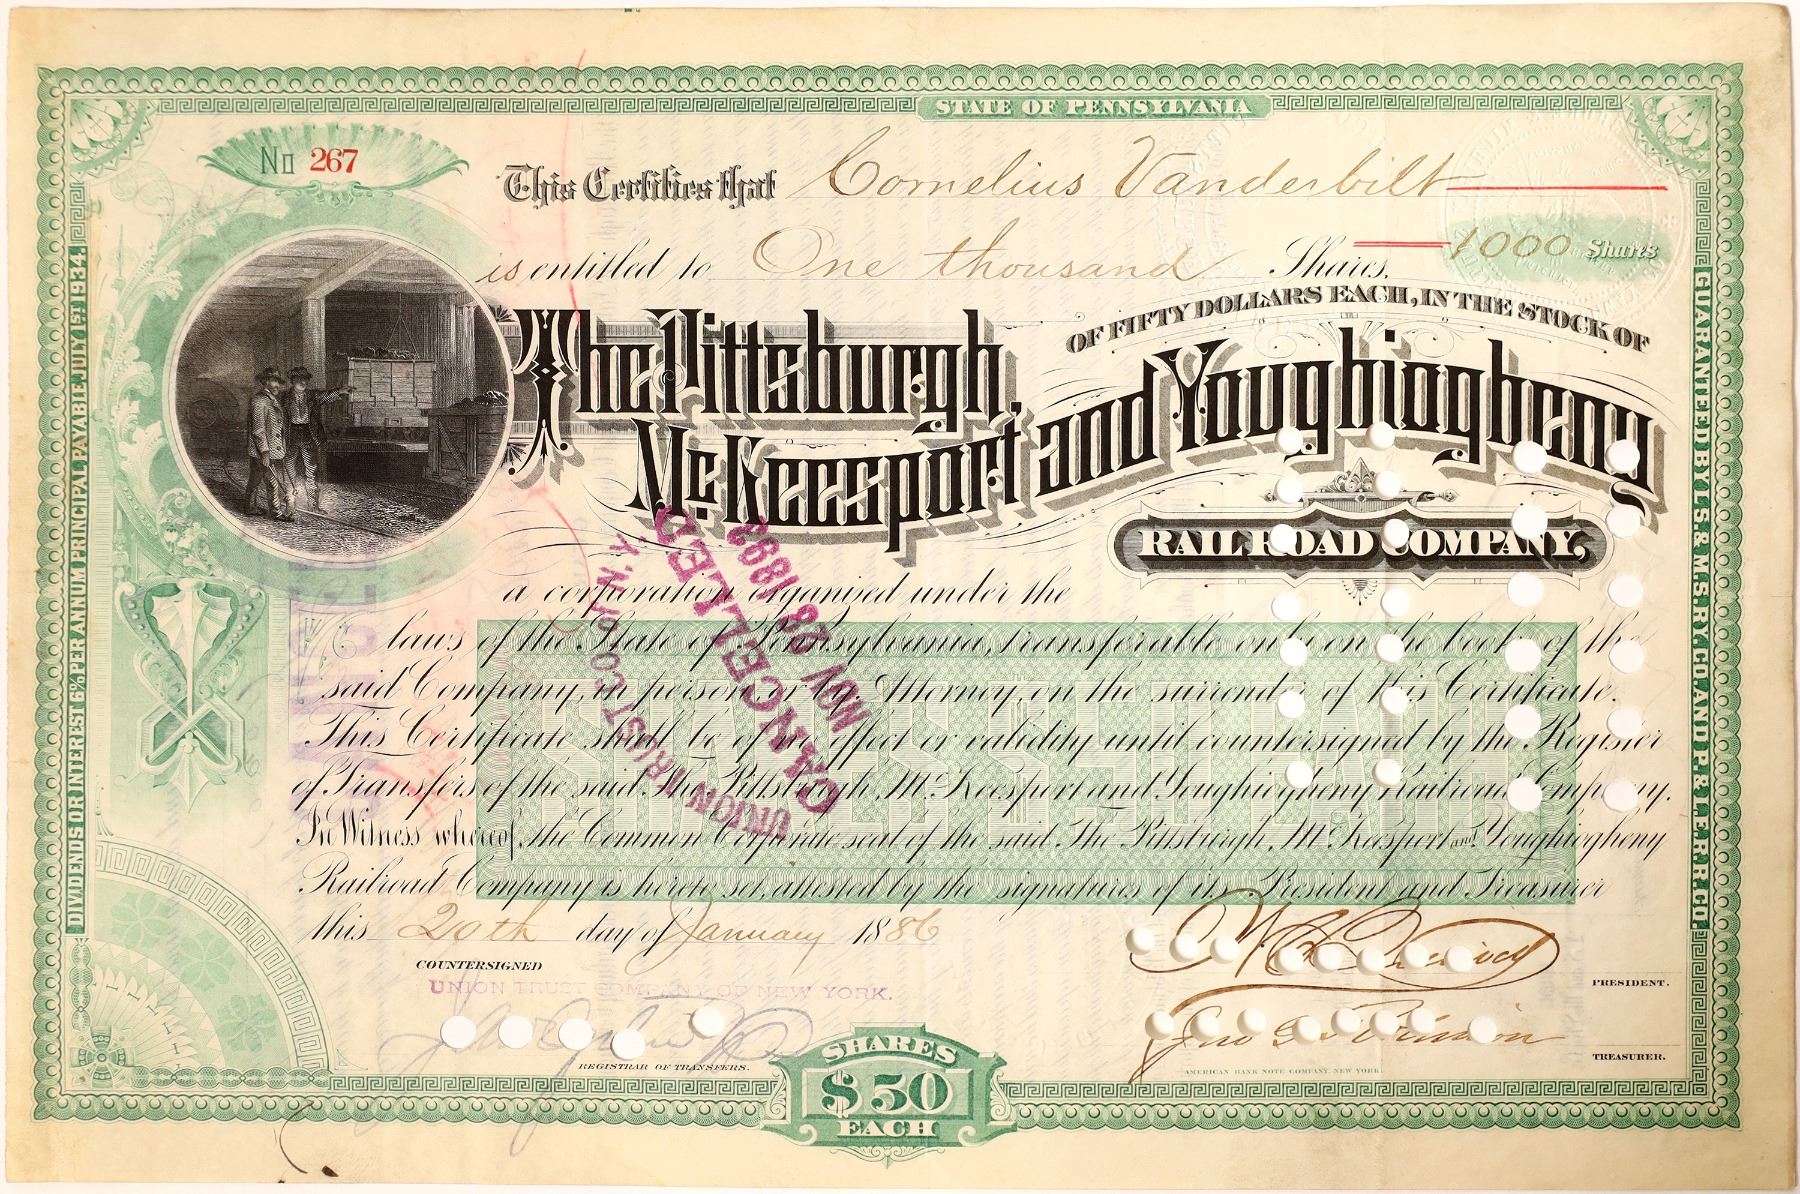 STATE OF PENNSYLVANIA
No 267
This Certifies that Cornelius Vanderbilt
is entitled to One thousand Shares, 1000 Shares
OF FIFTY DOLLARS EACH, IN THE STOCK OF
The Pittsburgh, McKeesport and Youghiogheny
RAILROAD COMPANY,
a corporation organised under the
laws of the State of Pennsylvania, transferable only on the books of the
said Company, in person or by Attorney, on the surrender of this Certificate.
This Certificate shall be of no effect or validity until countersigned by the Register
of Transfers of the said The Pittsburgh, McKeesport and Youghiogheny Railroad Company.
In Witness whereof, the Common Corporate seal of the said The Pittsburgh, McKeesport and Youghiogheny
Railroad Company is hereto set, attested by the signatures of its President and Treasurer
this 20th day of January 1886
COUNTERSIGNED
UNION TRUST COMPANY OF NEW YORK.
REGISTRAR OF TRANSFERS.
PRESIDENT.
TREASURER.
AMERICAN BANK NOTE COMPANY, NEW YORK.
SHARES
$50
EACH
DIVIDENDS OR INTEREST 6% PER ANNUM PRINCIPAL PAYABLE JULY 1ST 1934.
GUARANTEED BY L.S. & M.S. RY. CO. AND P. & L. ERR. CO.
UNION TRUST CO. OF N.Y.
CANCELLED
NOV 28 1892